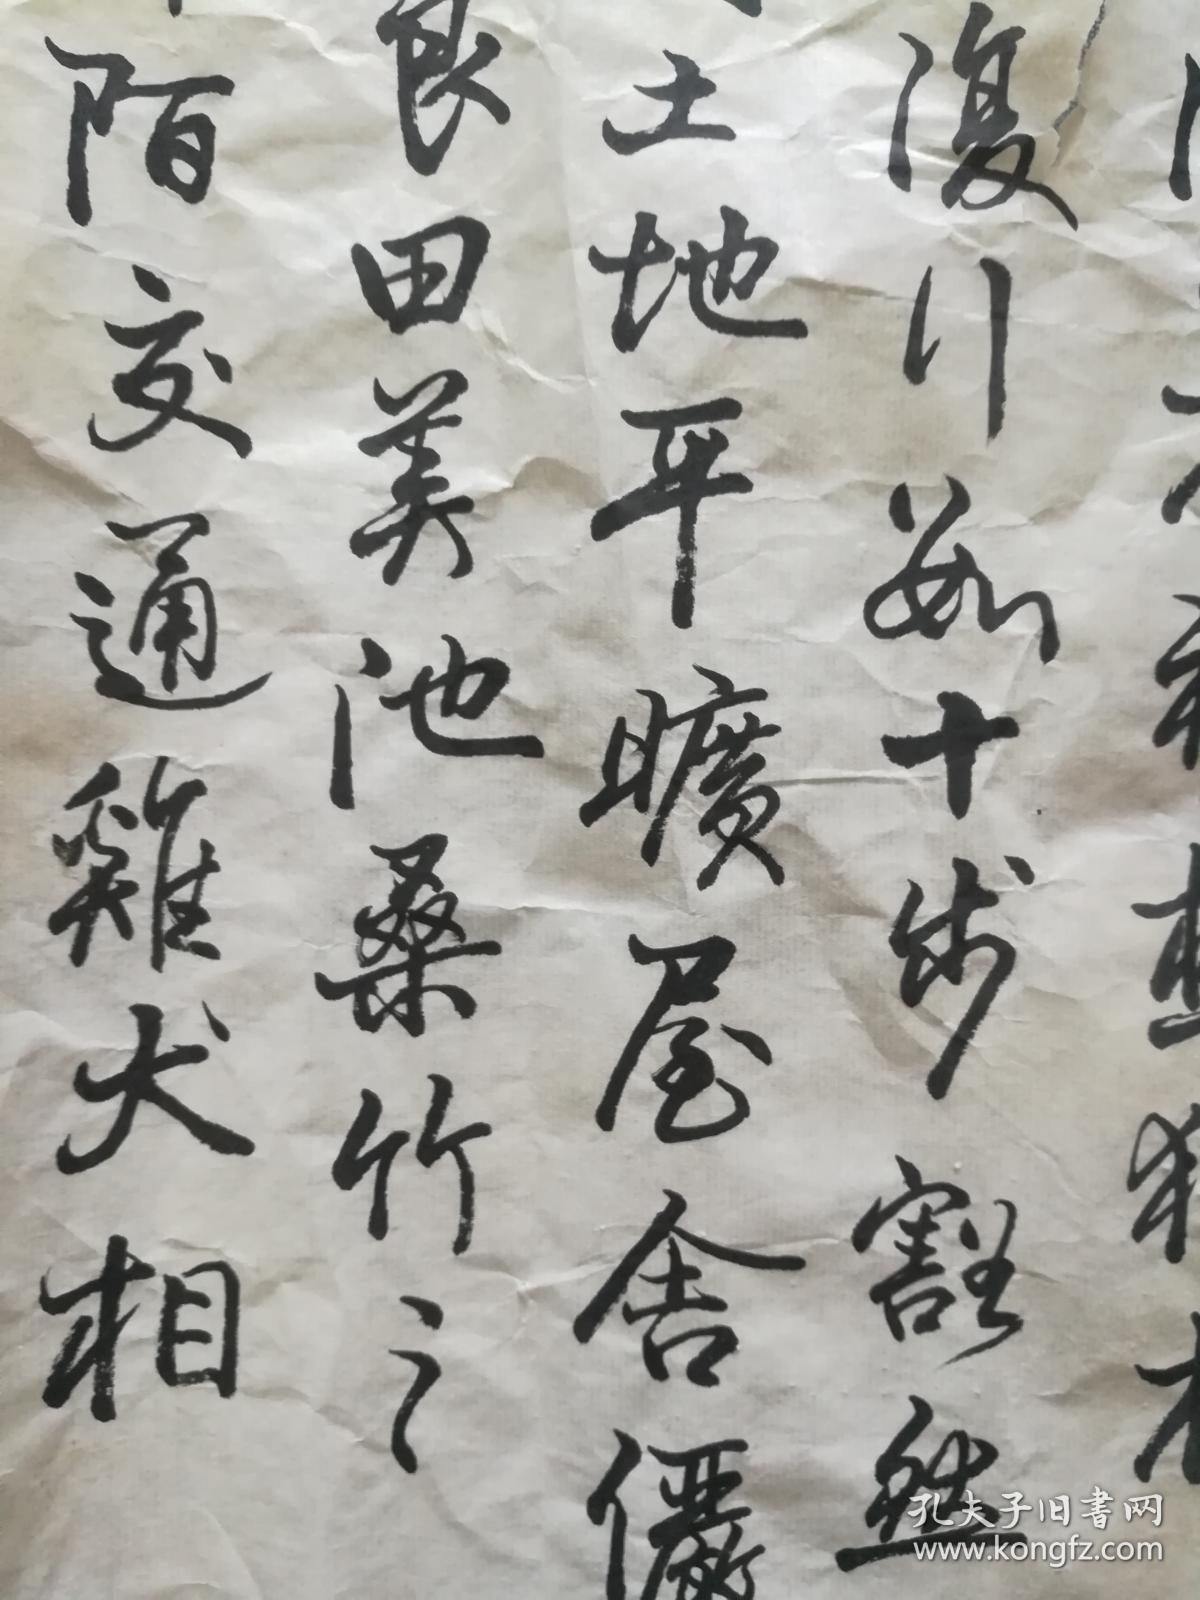 復行數十步豁然
土地平曠屋舍儼
良田美池桑竹之
陌交通雞犬相
孔夫子旧书网
www.kongfz.com